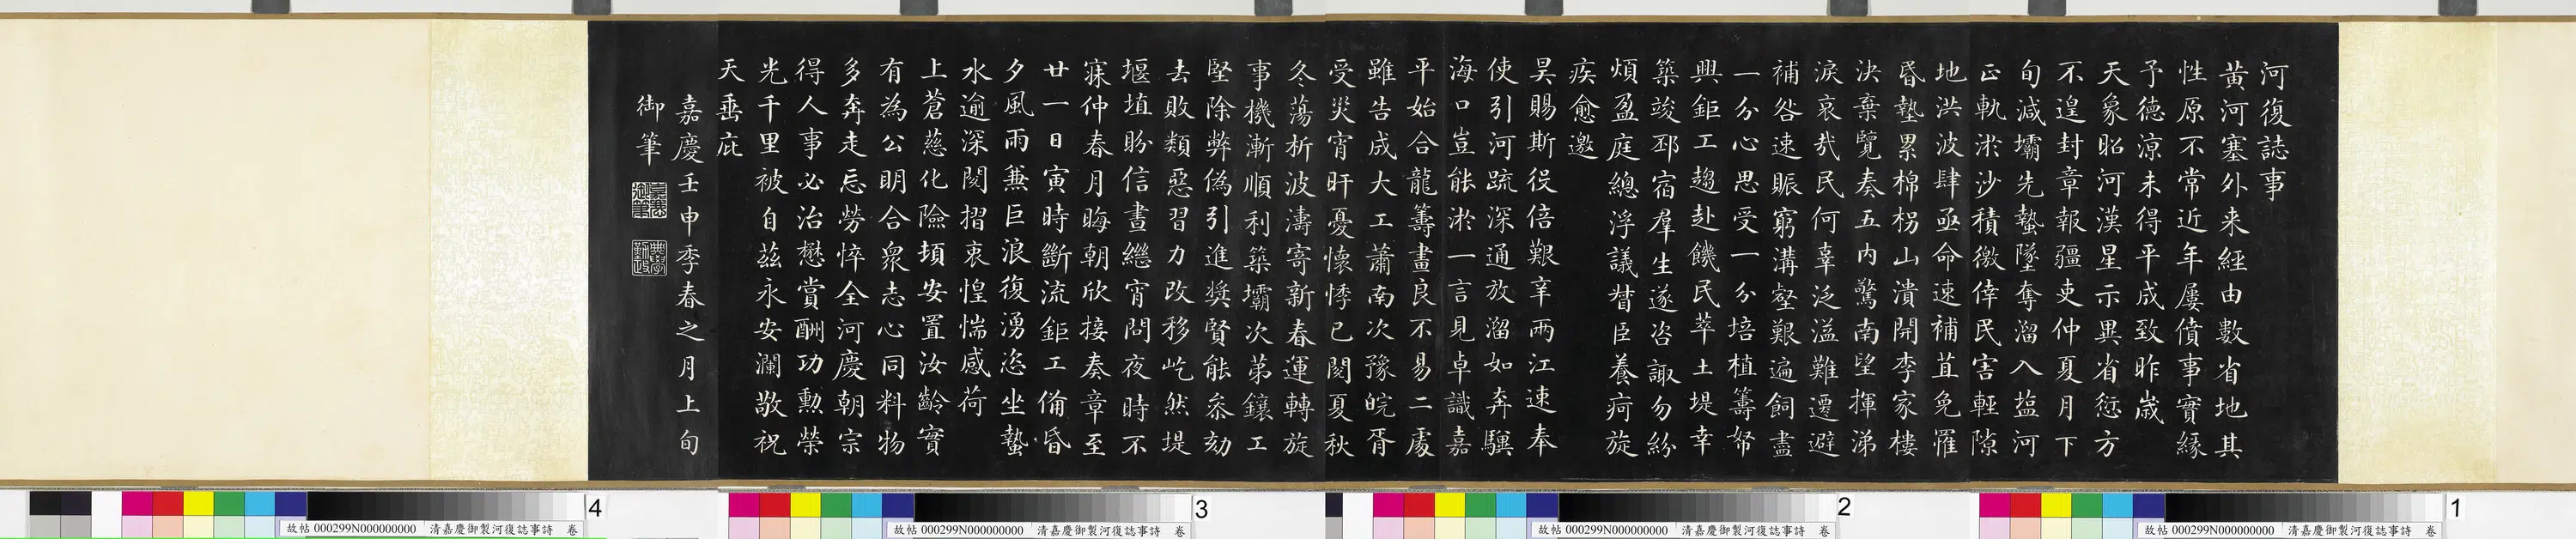 河復誌事
黃河塞外来經由數省地其
性原不常近年屢僨事實緣
予德涼未得平成致昨歲
天象昭河漢星示異省愆方
不遑封章報疆吏仲夏月下
旬減壩先蟄墜奪溜入盐河
正軌淤沙積徼倖民害輕隙
地洪波肆亟命速補苴免罹
昏墊累棉柺山潰開李家樓
決棄覽奏五內驚南望揮涕
淚哀哉民何辜泛溢難遷避
補咎速賑窮溝壑艱遍飼盡
一分心思受一分培植籌帑
興鉅工趨赴饑民萃土堤幸
築竣邳宿羣生遂咨諏勿紛
煩盈庭總浮議朁臣養疴旋
疾愈邀
昊賜斯役倍艱辛兩江速奉
使引河疏深通放溜如奔驥
海口豈能淤一言見卓識嘉
平始合龍籌畫良不易二處
雖告成大工蕭南次豫皖胥
受災宵旰憂懷悸已閱夏秋
冬蕩析波濤寄新春運轉旋
事機漸順利築壩次第鑲工
堅除弊偽引進獎賢能叅劾
去敗類惡習力改移屹然堤
堰埴盼信晝繼宵問夜時不
寐仲春月晦朝欣接奏章至
廿一日寅時斷流鉅工俻昏
夕風雨兼巨浪復湧恣坐蟄
水逾深閱摺衷惶惴感荷
上蒼慈化險頃安置汝齡實
有為公明合衆志心同料物
多奔走忘勞悴全河慶朝宗
得人事必治懋賞酬功勲榮
光千里被自茲永安瀾敬祝
天垂庇
嘉慶壬申季春之月上旬
御筆
嘉慶御筆
典學勤政
1
故帖 000299N000000000 清嘉慶御製河復誌事詩 卷
2
故帖 000299N000000000 清嘉慶御製河復誌事詩 卷
3
故帖 000299N000000000 清嘉慶御製河復誌事詩 卷
4
故帖 000299N000000000 清嘉慶御製河復誌事詩 卷